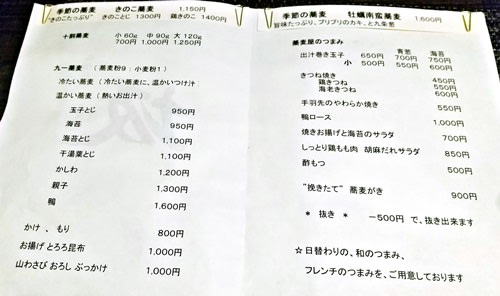 季節の蕎麦　きのこ蕎麦　1,150円
"きのこたっぷり"　きのことじ　1300円　鶏きのこ　1400円
十割蕎麦　小 60g　中 90g　大 120g
700円　1,000円　1,250円
九一蕎麦　（ 蕎麦粉9：小麦粉1 ）
冷たい蕎麦（ 冷たい蕎麦に、温かいつけ汁
温かい蕎麦（ 熱いお出汁 ）
玉子とじ　950円
海苔　950円
海苔とじ　1,100円
干湯葉とじ　1,100円
かしわ　1,200円
親子　1,300円
鴨　1,600円
かけ 、 もり　800円
お揚げ とろろ昆布　1,000円
山わさび おろし ぶっかけ　1,000円
季節の蕎麦　牡蠣南蛮蕎麦　1,600円
旨味たっぷり、プリプリのカキ、と九条葱
蕎麦屋のつまみ
青葱　海苔
出汁巻き玉子　650円　700円　750円
小　500円　550円　600円
きつね焼き　450円
鶏きつね　550円
海老きつね　600円
手羽先のやわらか焼き　550円
鴨ロース　1,000円
焼きお揚げと海苔のサラダ　700円
しっとり鶏もも肉　胡麻だれサラダ　850円
酢もつ　500円
"挽きたて" 蕎麦がき　900円
＊ 抜き ＊　－500円 で、抜き出来ます
☆ 日替わりの、和のつまみ、
フレンチのつまみを、ご用意しております